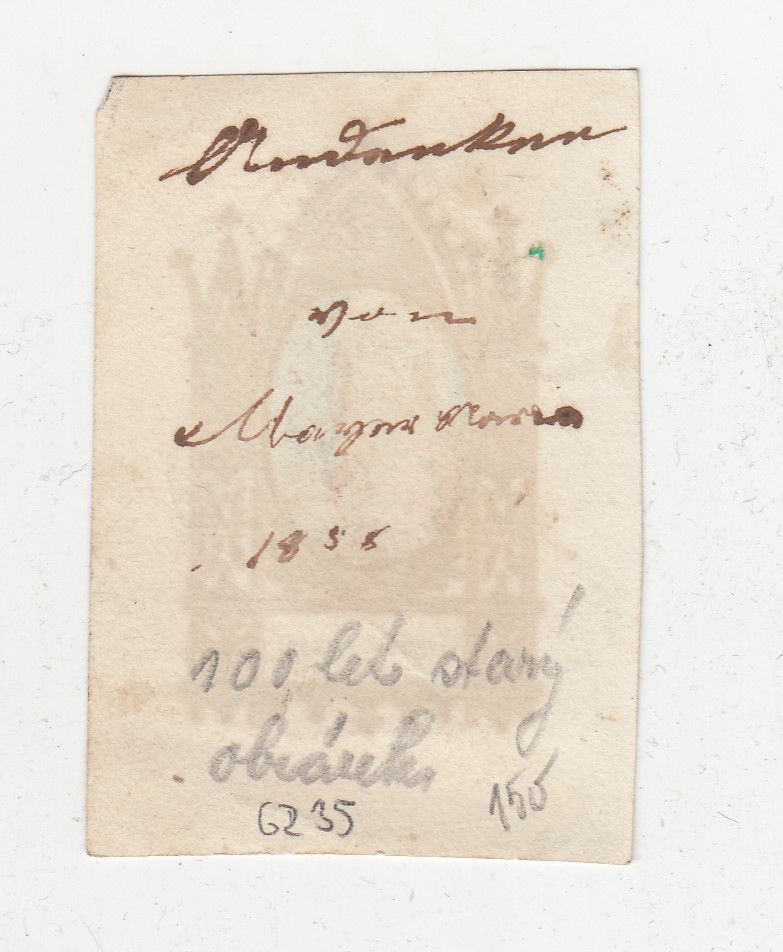 Andenken
von
1856
100 let starý
obrázek
6235
150